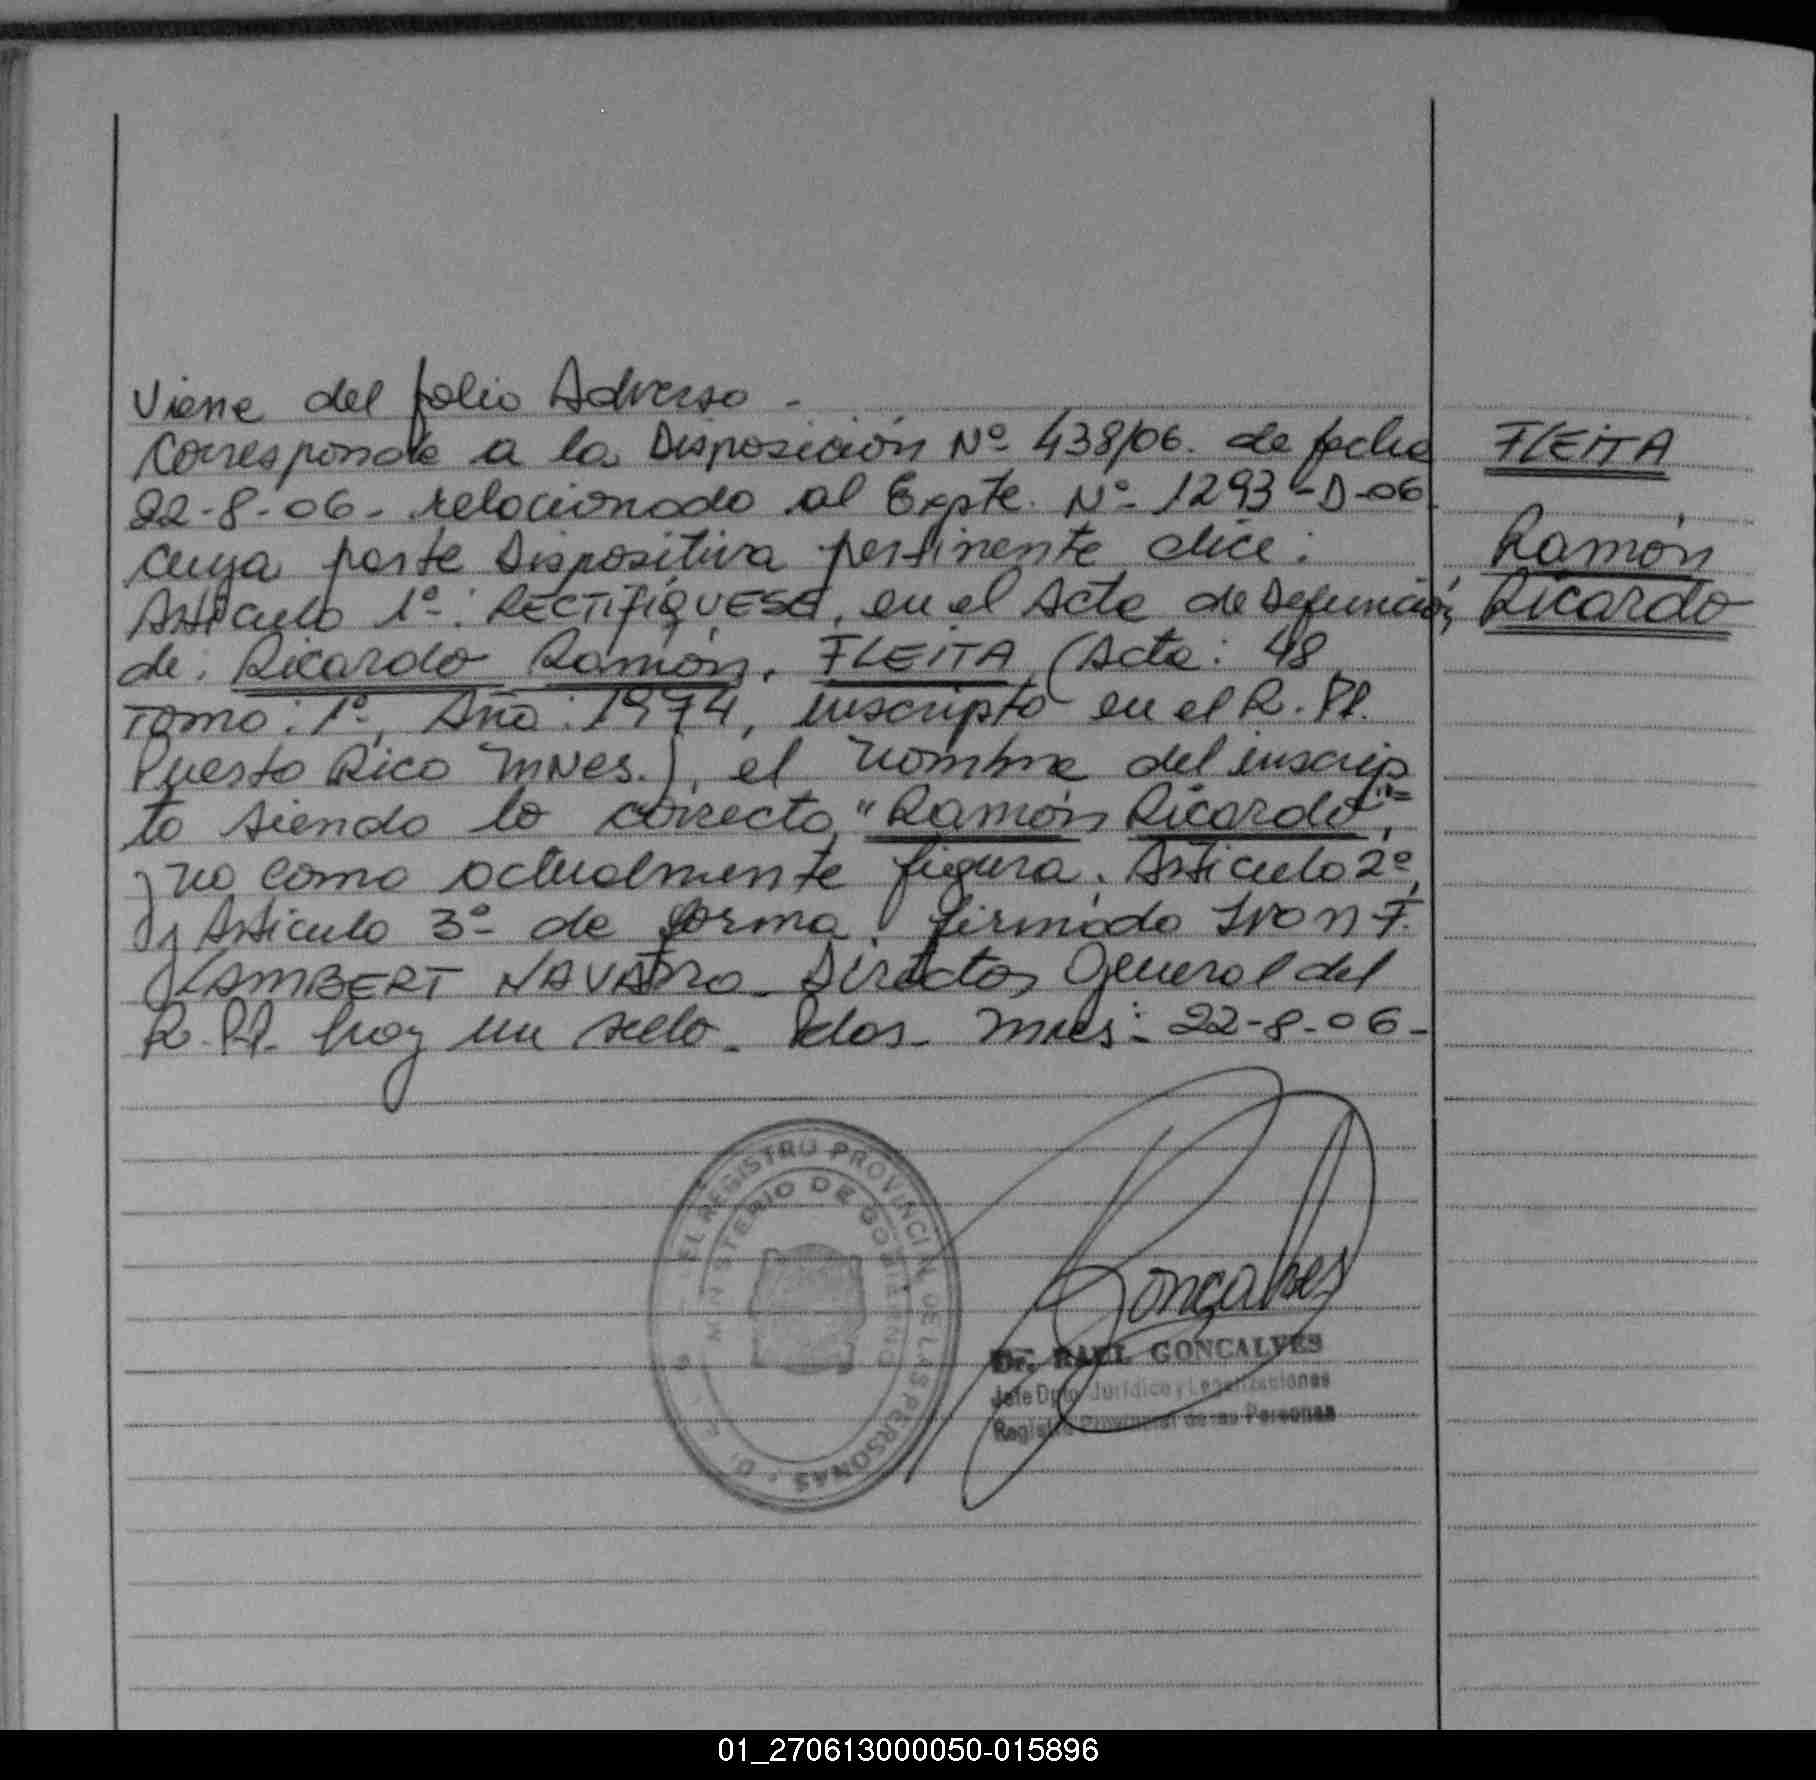 Viene del folio Adverso -
Corresponde a la Disposición Nº 438/06. de fecha
22-8-06- relacionado al Expte. Nº- 1293-D-06.
cuya parte Dispositiva pertinente dice:
Articulo 1º: RECTIFIQUESE, en el Acta de Defunción,
de: Ricardo Ramón, FLEITA (Acta: 48
Tomo: 1º, Año: 1974, inscripto en el R. PP.
Puerto Rico Mnes.), el nombre del inscrip
to siendo lo correcto "Ramón Ricardo"=
y no como actualmente figura. Articulo 2º,
y Articulo 3º- de forma. firmado Ivon F.
LAMBERT NAVARRO- Director General del
R. PP. hay un sello- Pdas- Mnes- 22-8-06-
FLEITA
Ramón
Ricardo
EL REGISTRO PROVINCIAL DE LAS PERSONAS
MINISTERIO DE GOBIERNO
Goncalves
Dr. RAUL GONCALVES
Jefe Dpto. Jurídico y Legalizaciones
Registro Provincial de las Personas
01_270613000050-015896